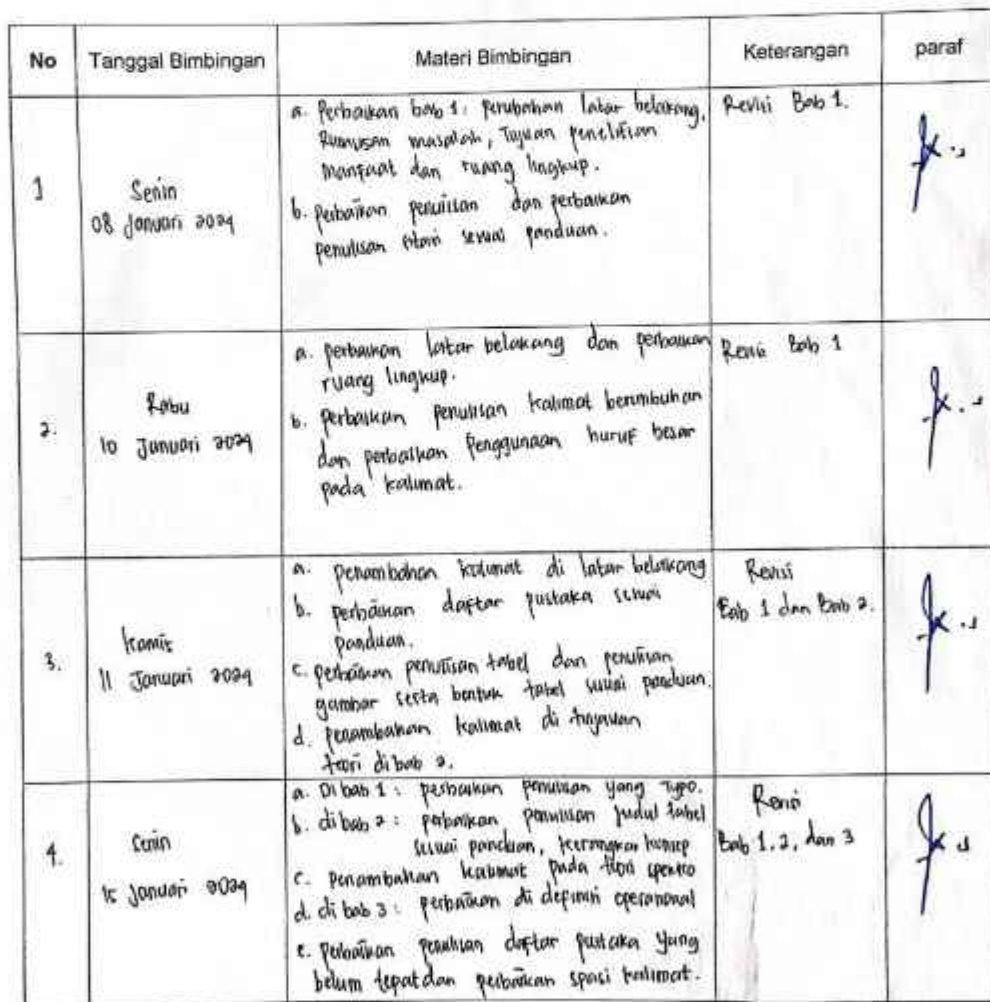 No Tanggal Bimbingan Materi Bimbingan Keterangan paraf
1
Senin
08 Januari 2024
a. Perbaikan bab 1: perubahan latar belakang,
Rumusan masalah, Tujuan penelitian
manfaat dan ruang lingkup.
b. perbaikan penulisan dan perbaikan
penulisan sitasi sesuai panduan.
Revisi Bab 1.
2.
Rabu
10 Januari 2024
a. perbaikan latar belakang dan perbaikan
ruang lingkup.
b. perbaikan penulisan kalimat berimbuhan
dan perbaikan Penggunaan huruf besar
pada kalimat.
Revisi Bab 1
3.
kamis
11 Januari 2024
a. penambahan kalimat di latar belakang
b. perbaikan daftar pustaka sesuai
panduan.
c. perbaikan penulisan tabel dan penulisan
gambar serta bentuk tabel sesuai panduan.
d. penambahan kalimat di tinjauan
teori di bab 2.
Revisi
Bab 1 dan Bab 2.
4.
Senin
15 Januari 2024
a. Di bab 1 : perbaikan penulisan yang Typo.
b. di bab 2 : perbaikan penulisan judul tabel
sesuai panduan, kerangka konsep
c. penambahan kalimat pada teori
d. di bab 3 : perbaikan di definisi operasional
e. Perbaikan penulisan daftar pustaka yang
belum tepat dan perbaikan spasi kalimat.
Revisi
Bab 1, 2, dan 3